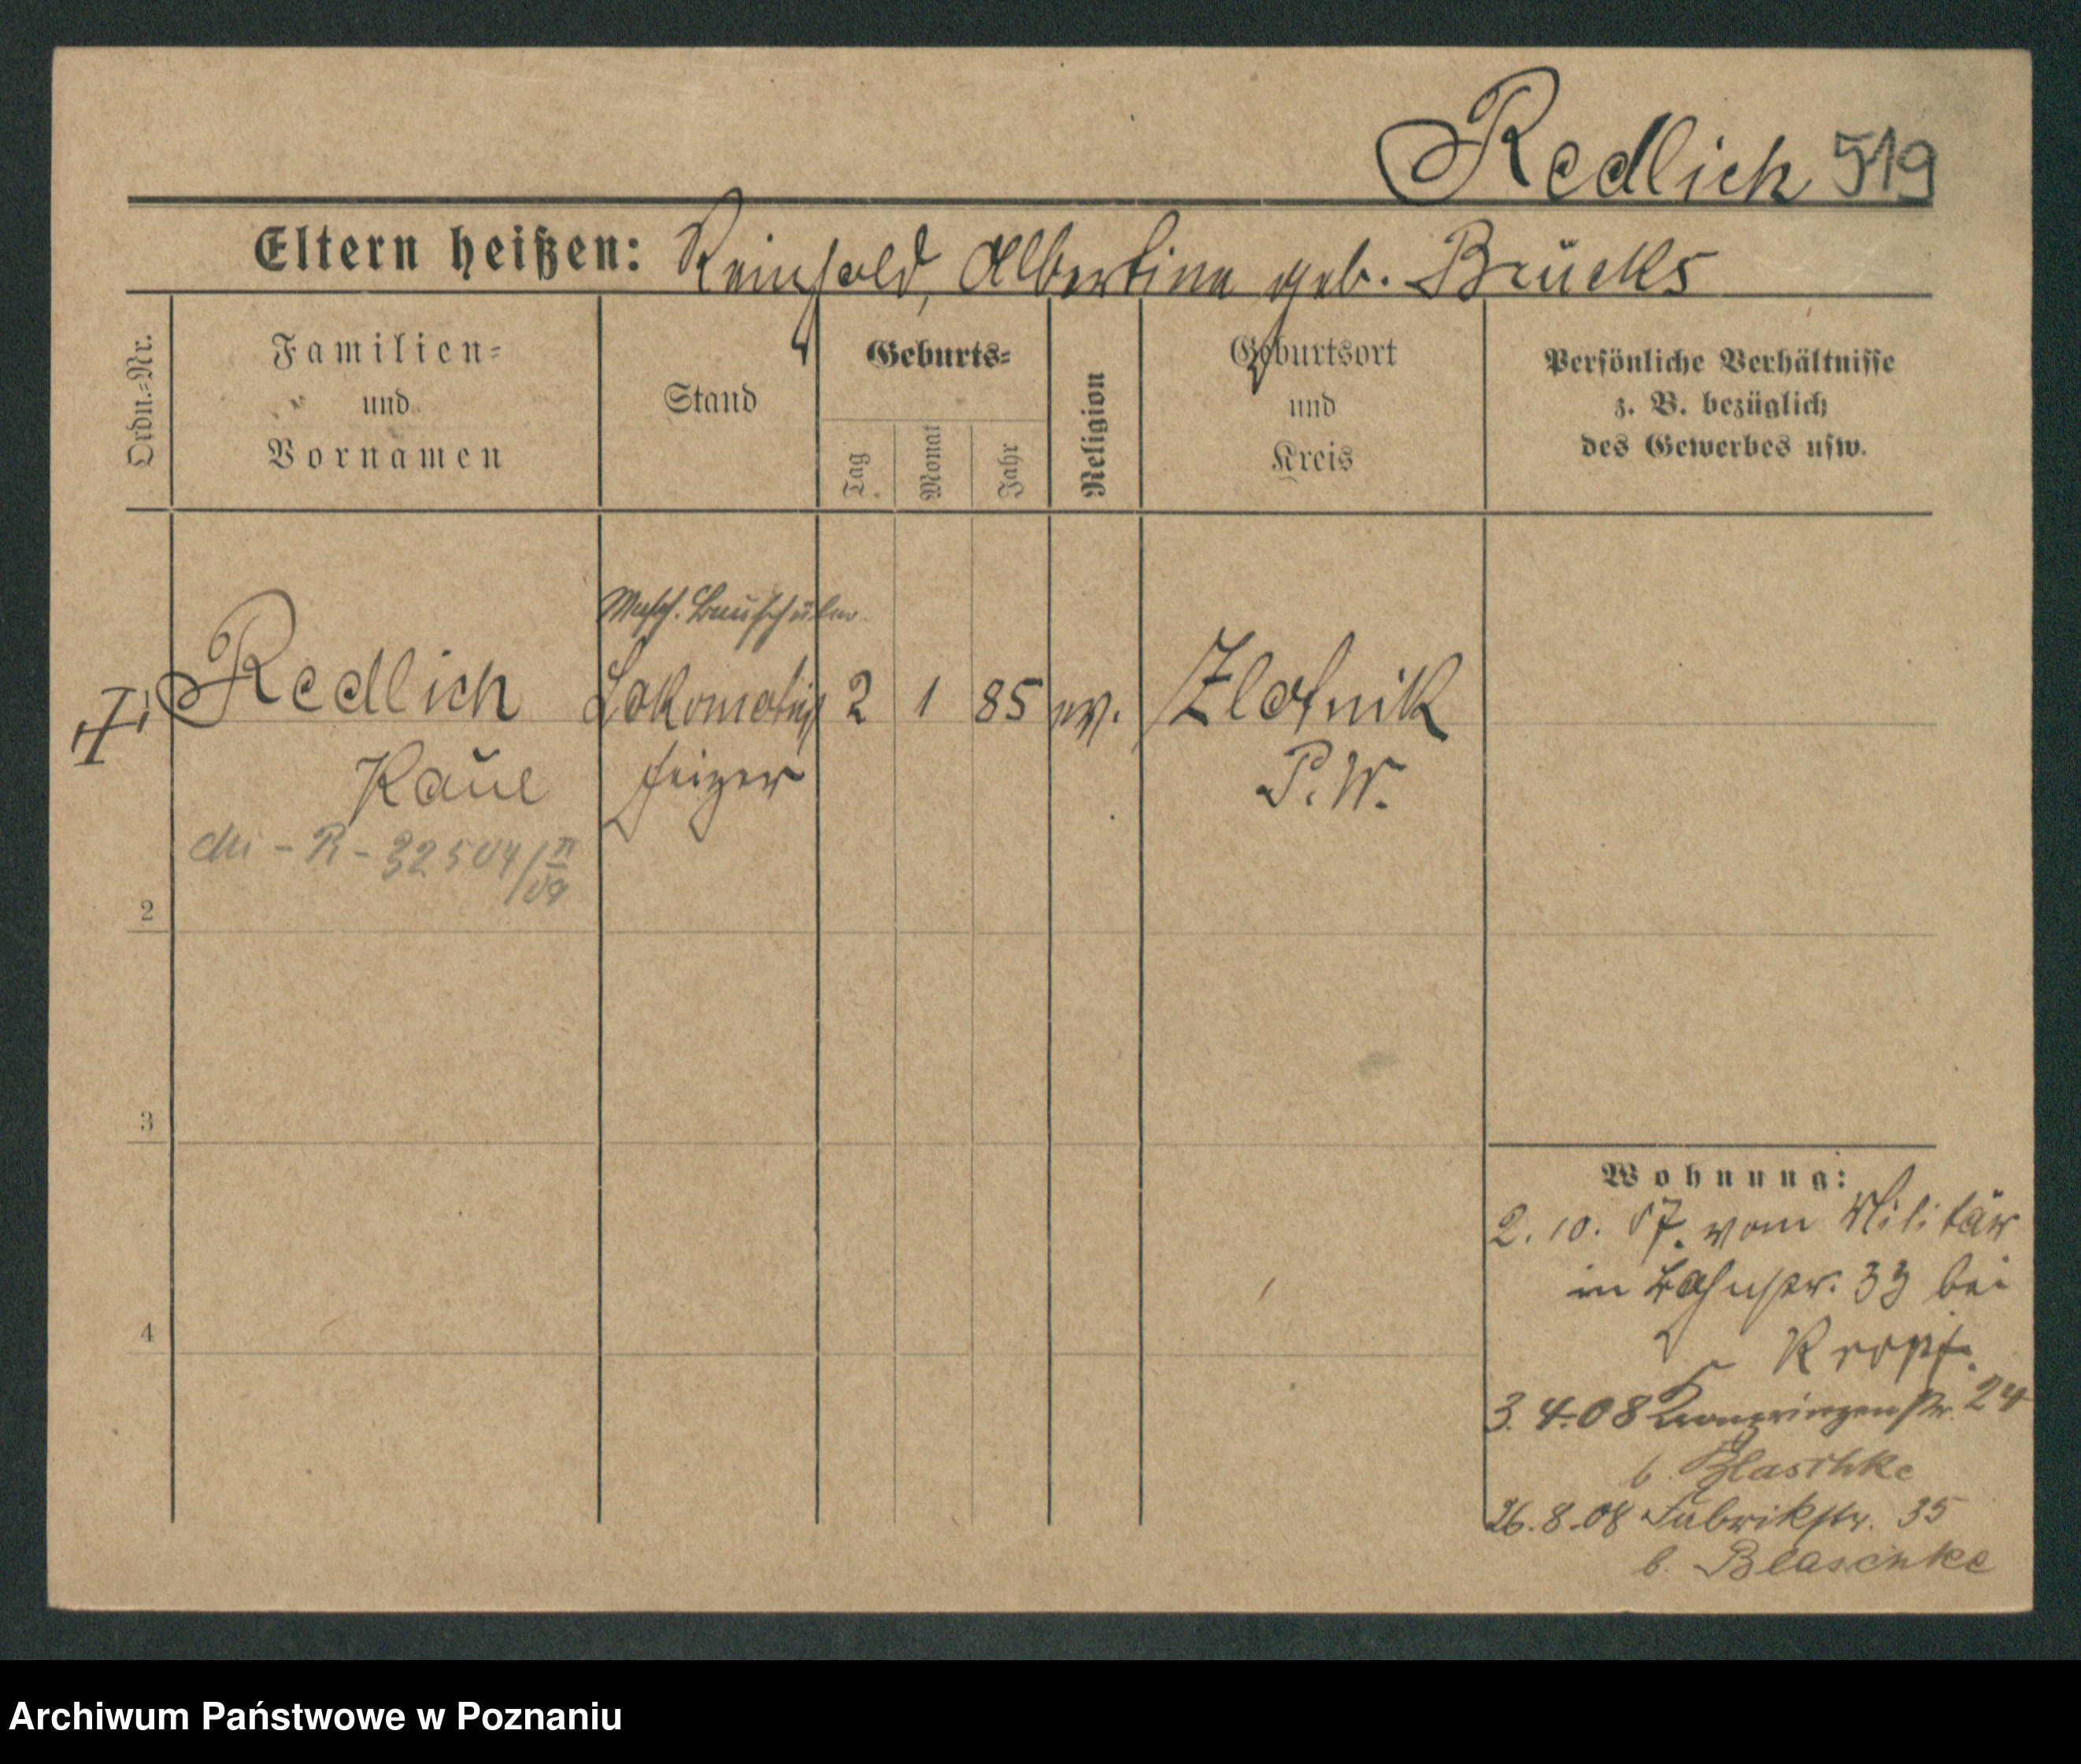 Redlich 519
Eltern heißen: Reinhold, Albertine geb. Brücks
Ordn.=Nr.
Familien=
und
Vornamen
Stand
Geburts=
Tag
Monat
Jahr
Religion
Geburtsort
und
Kreis
Persönliche Verhältnisse
z. B. bezüglich
des Gewerbes usw.
Masch. Bauschüler
Redlich Lokomotiv 2 1 85 ev. Zlotnik
heizer P.W.
R - 32504/
2
3
4
Wohnung:
2. 10. 07. vom Militär
in Bahnstr. 33 bei
Kropf.
3. 4. 08 Kronprinzenstr. 24
b. Blaschke
26. 8. 08 Fabrikstr. 35
b. Blaschke
Archiwum Państwowe w Poznaniu